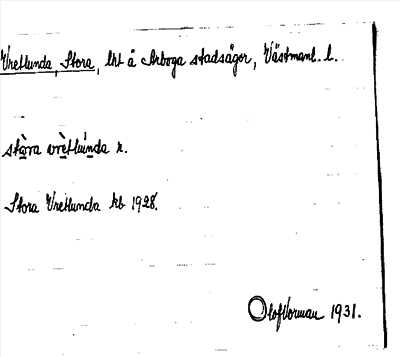 Vretlunda, Stora, lht å Arboga stadsägor, Västmanl. l.
stàra vrètlúnda r.
Stora Vretlunda kb 1928.
Olof Vorman 1931.